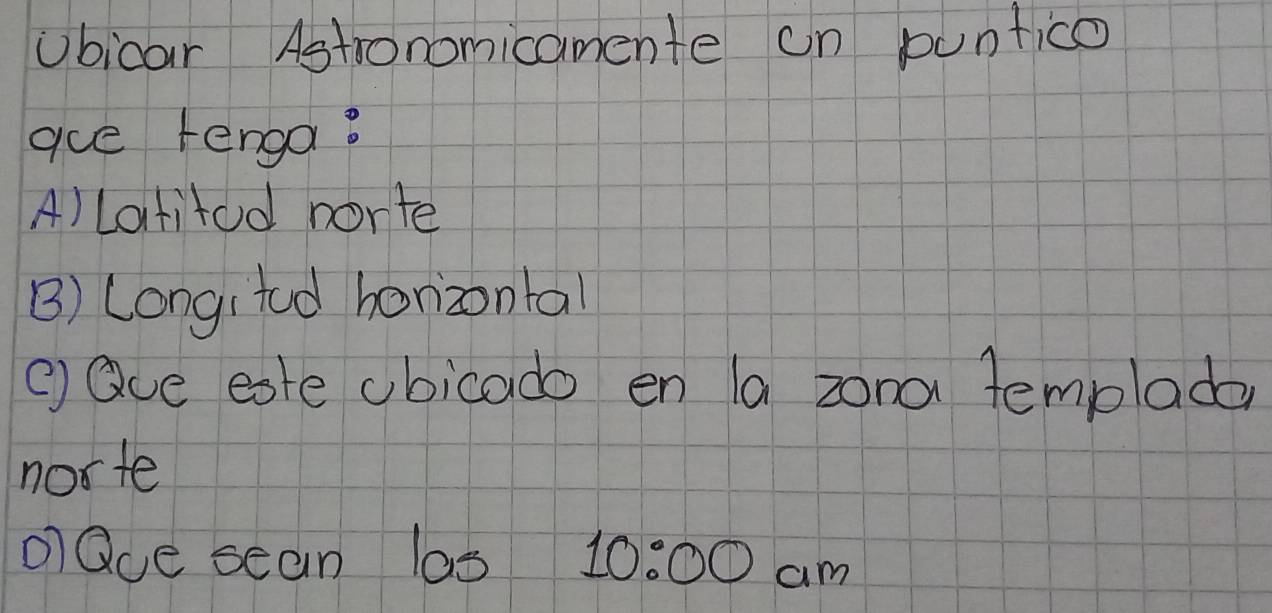 Ubicar Astronomicamente un puntico
que tenga:
A) Latitud norte
B) Longitud horizontal
C) Que este ubicado en la zona templada
norte
D) Que sean las 10:00 am